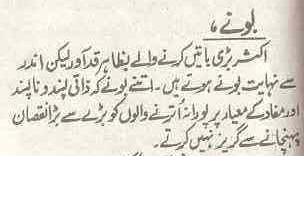 بونے،
اکثر بڑی باتیں کرنے والے بظاہر قدآور لیکن اندر
سے نہایت بونے ہوتے ہیں۔ اتنے بونے کہ ذاتی پسند و ناپسند
اور مفاد کے معیار پر پورا نہ اُترنے والوں کو بڑے سے بڑا نقصان
پہنچانے سے گریز نہیں کرتے۔